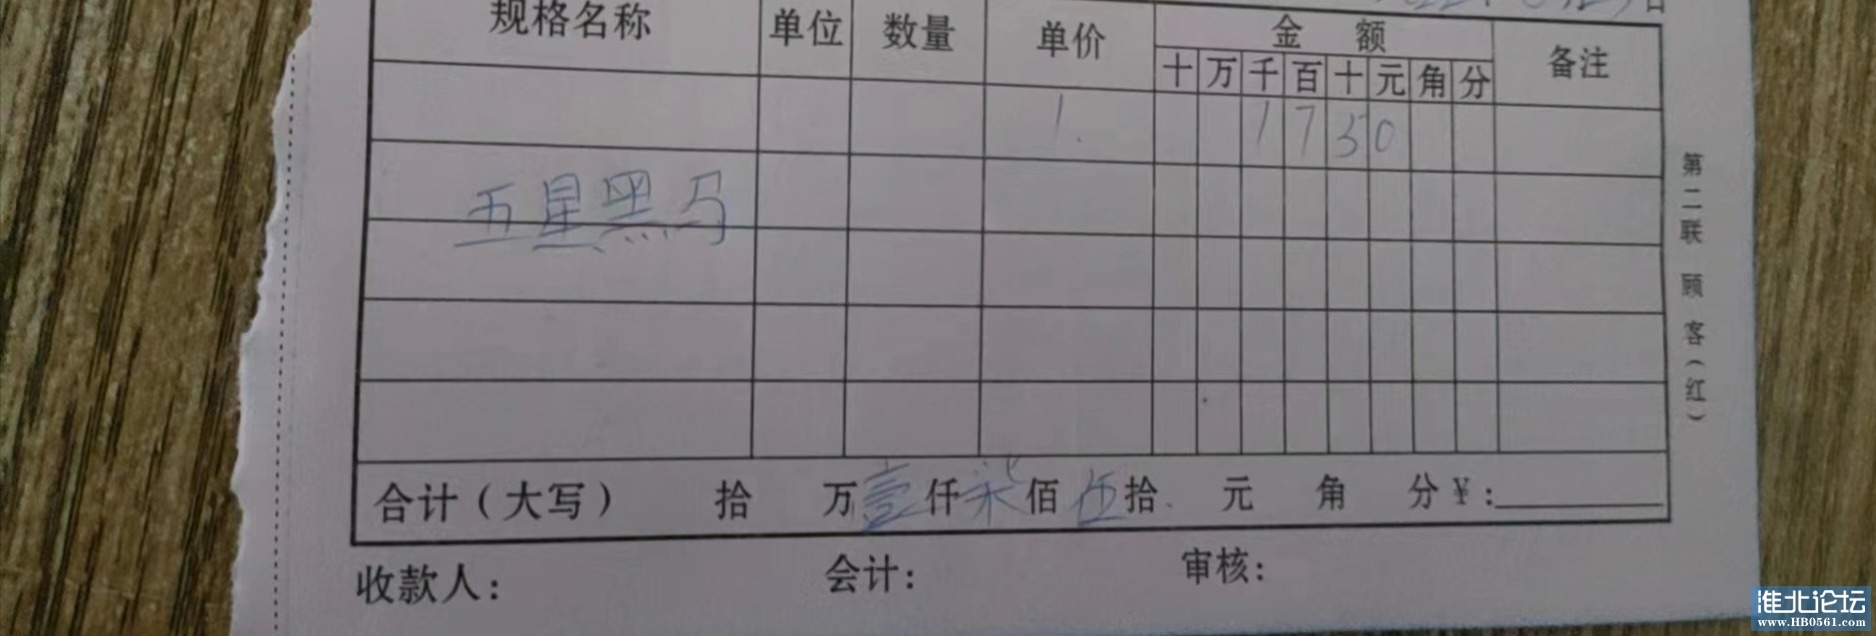 日
规格名称 单位 数量 单价 金额 备注
十 万 千 百 十 元 角 分
1. 1 7 5 0
五星黑马
合计（大写） 拾 万壹仟柒佰伍拾 元 角 分￥：
收款人： 会计： 审核：
第二联 顾客（红）
淮北论坛
www.HB0561.com